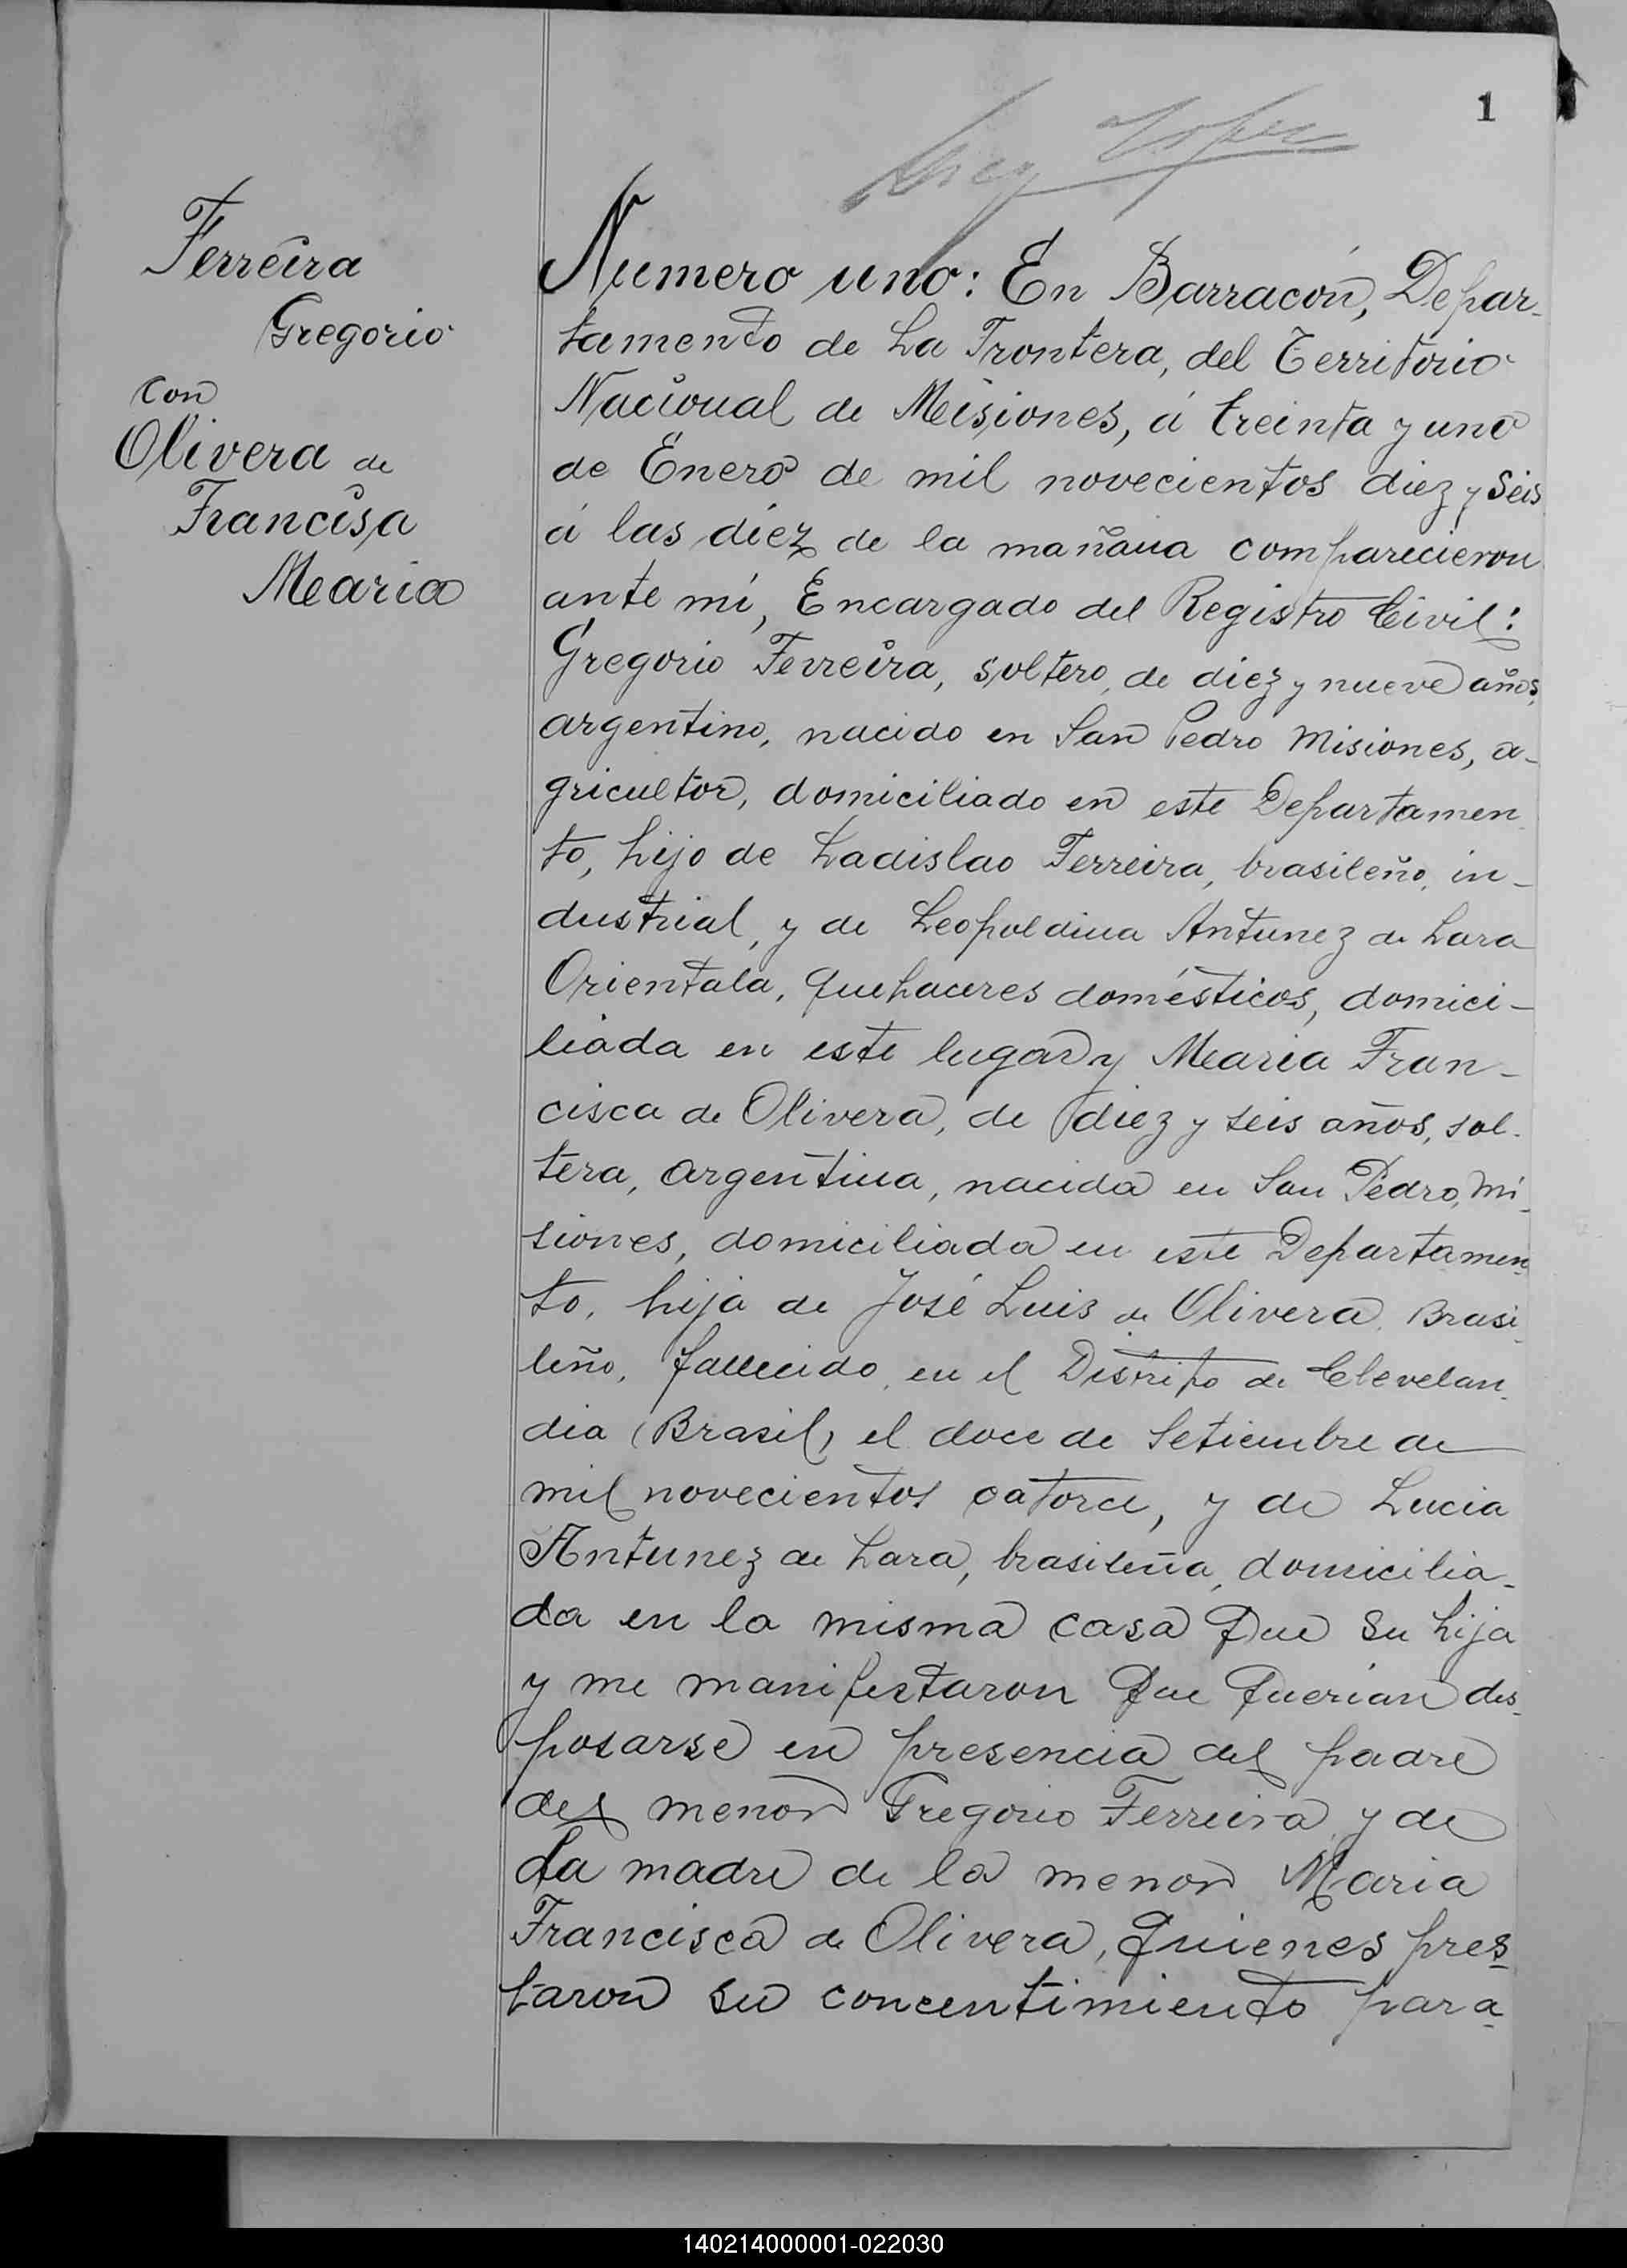 1
Ferreira
Gregorio
Con
Olivera de
Francisa
Maria
Numero uno: En Barracón, Depar-
tamento de La Frontera, del Territorio
Nacional de Misiones, á treinta y uno
de Enero de mil novecientos diez y seis
á las diez de la mañana comparecieron
ante mí, Encargado del Registro Civil:
Gregorio Ferreira, soltero, de diez y nueve años,
argentino, nacido en San Pedro Misiones, a-
gricultor, domiciliado en este Departamen
to, hijo de Ladislao Ferreira, brasileño, in-
dustrial, y de Leopoldina Antunez de Lara
Orientala, quehaceres domésticos, domici-
liada en este lugar y Maria Fran-
cisca de Olivera, de diez y seis años, sol-
tera, argentina, nacida en San Pedro, Mi-
siones, domiciliada en este Departamen
to, hija de José Luis de Olivera, Brasi
leño, fallecido, en el Distrito de Clevelan-
dia (Brasil) el doce de Setiembre de
mil novecientos catorce, y de Lucia
Antunez de Lara, brasileña, domicilia-
da en la misma casa que su hija
y me manifestaron que querian des-
posarse en presencia del padre
del menor Gregorio Ferreira, y de
La madre de la menor Maria
Francisca de Olivera, quienes pres-
taron su concentimiento para
140214000001-022030